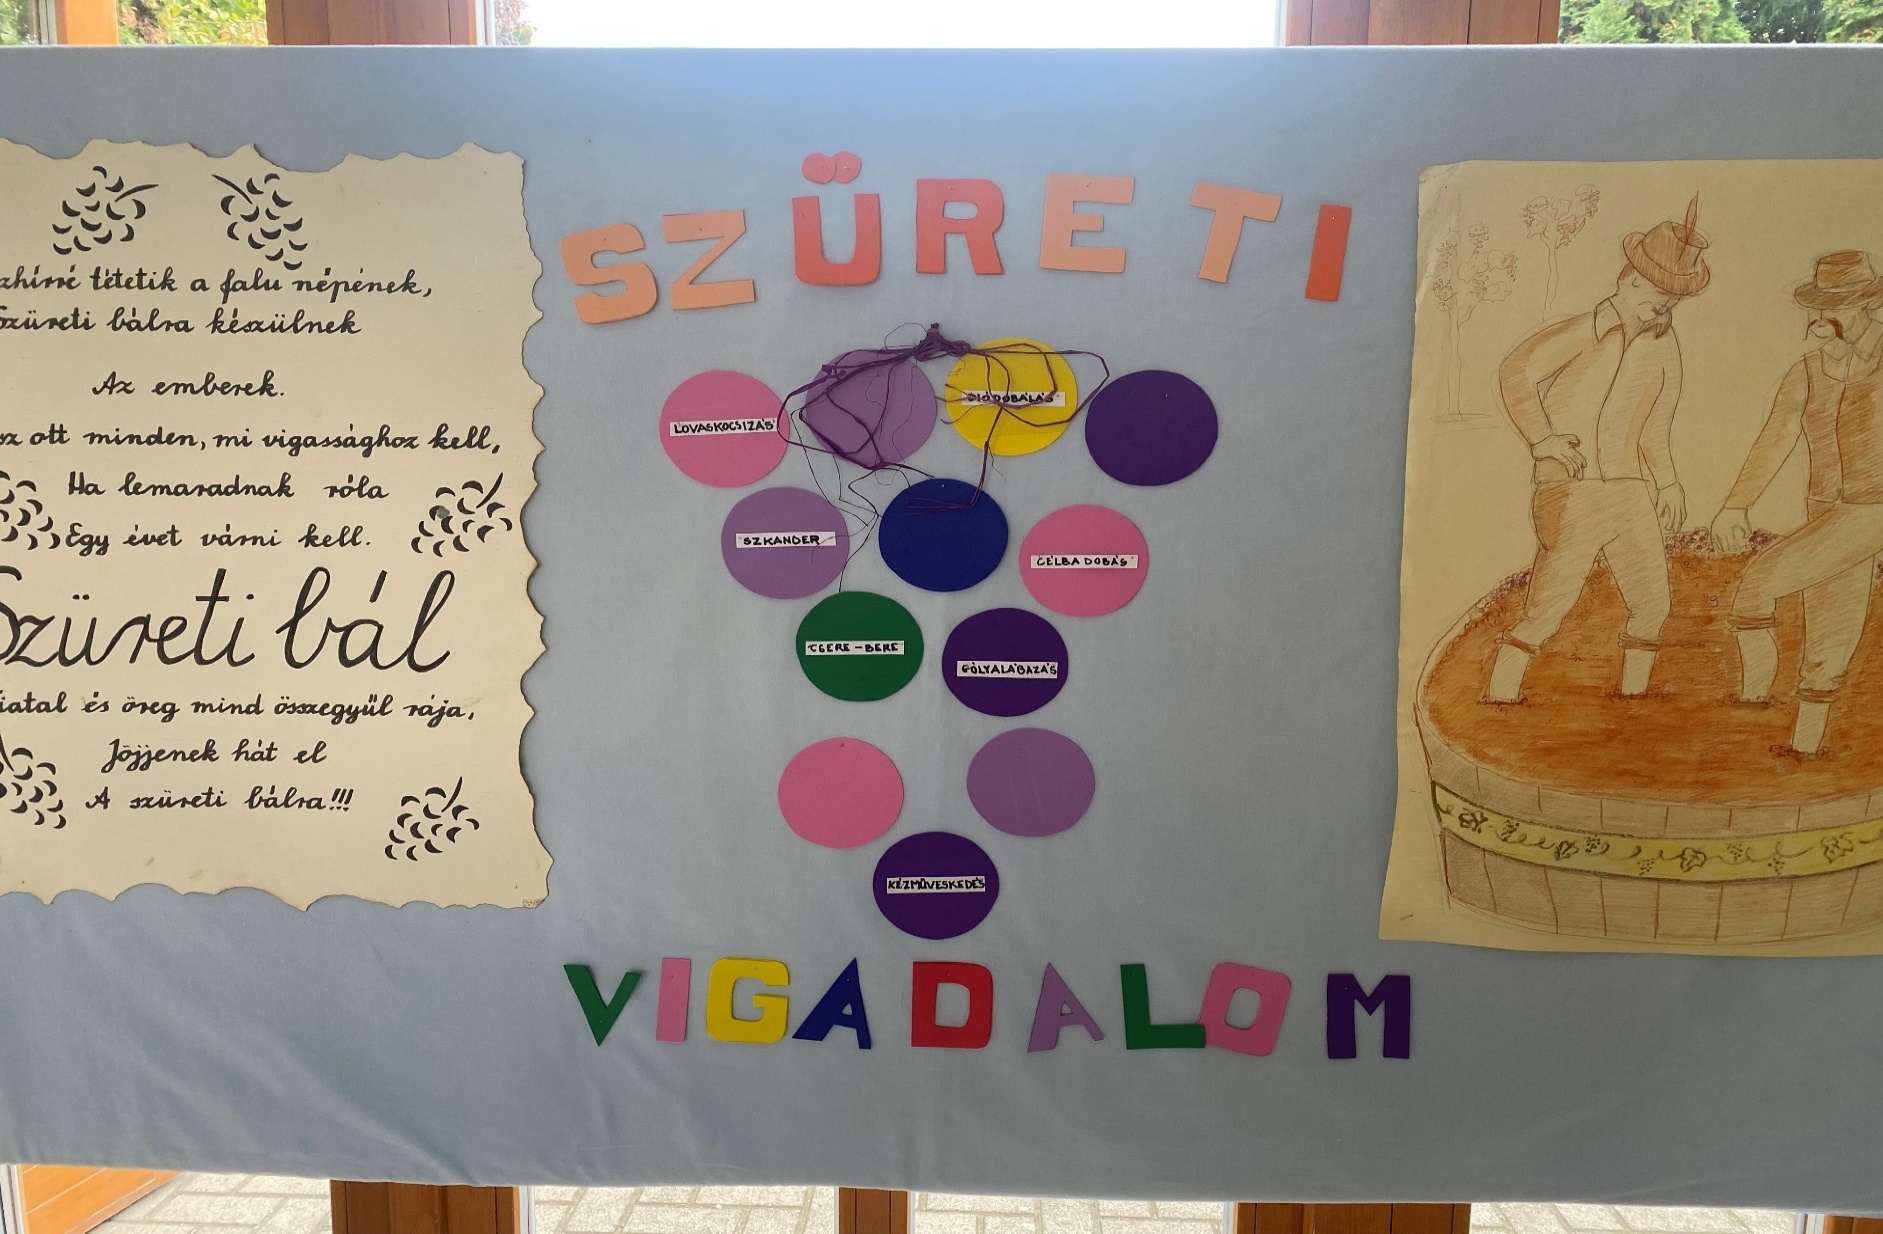 zhírré tétetik a falu népének,
Szüreti bálra készülnek
Az emberek.
sz ott minden, mi vigassághoz kell,
Ha lemaradnak róla
Egy évet várni kell.
Szüreti bál
iatal és öreg mind összegyűl rája,
Jöjjenek hát el
A szüreti bálra!!!
SZÜRETI
LOVASKOCSIZÁS
DIÓDOBÁLÁS
SZKANDER
CÉLBA DOBÁS
CSERE-BERE
GÓLYALÁBAZÁS
KÉZMŰVESKEDÉS
VIGADALOM